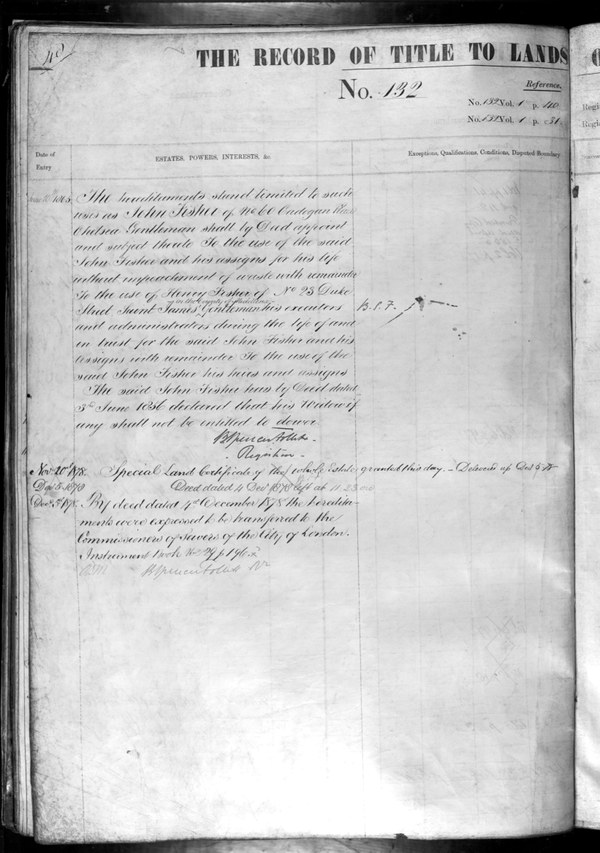 40
THE RECORD OF TITLE TO LANDS
No. 132
Reference.
No. 132 Vol. 1 p.
No. 132 Vol. 1 p. 31
Date of
Entry
ESTATES, POWERS, INTERESTS, &c.
Exceptions, Qualifications, Conditions, Disputed Boundary
The hereditaments stand limited to such
uses as John Fisher of No 60 Cadogan Place
Chelsea Gentleman shall by Deed appoint
and subject thereto To the use of the said
John Fisher and his assigns for his life
without impeachment of waste with remainder
To the use of Henry Fisher of No 23 Duke
in the County of Middlesex
Street Saint James Gentleman his executors
and administrators during the life of and
in trust for the said John Fisher and his
assigns with remainder To the use of the
said John Fisher his heirs and assigns
The said John Fisher has by Deed dated
3rd June 1856 declared that his Widow if
any shall not be entitled to dower
B Spencer Follett
Registrar
Nov 20th 1878 Special Land Certificate of the whole Estate granted this day. - Delivered up Dec 5
Dec 5 1878 Deed dated 4 Dec 1878 left at 11.23
Dec 5th 1878 By deed dated 4th December 1878 the heredita-
ments were expressed to be transferred to the
Commissioners of Sewers of the City of London.
Instrument book No
B Spencer Follett Rr